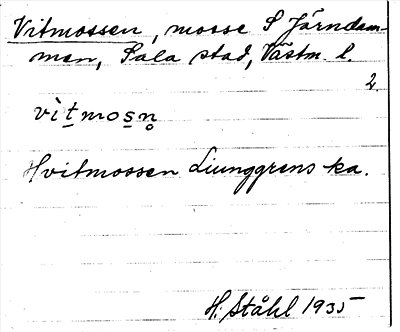 Vitmossen, mosse S Järndam-
men, Sala stad, Västm. l.
2.
vìt̲mos̲n̥
Hvitmossen Ljunggrens ka.
H. Ståhl 1935